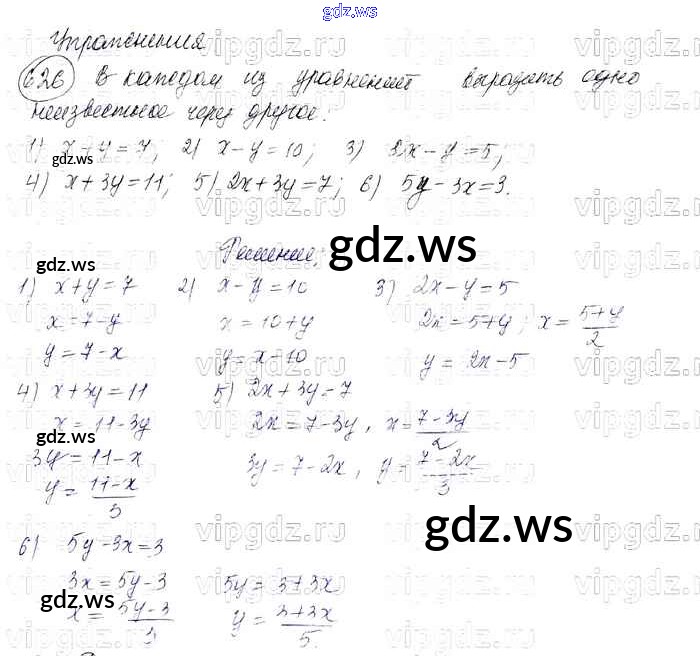 gdz.ws
Упражнения
626 В каждом из уравнений выразить одно
неизвестное через другое:
1) x+y=7; 2) x-y=10; 3) 2x-y=5;
4) x+3y=11; 5) 2x+3y=7; 6) 5y-3x=3.
Решение:
gdz.ws
1) x+y=7 2) x-y=10 3) 2x-y=5
x=7-y x=10+y 2x=5+y; x=(5+y)/2
y=7-x y=x-10 y=2x-5
4) x+3y=11 5) 2x+3y=7
x=11-3y 2x=7-3y, x=(7-3y)/2
3y=11-x 3y=7-2x, y=(7-2x)/3
y=(11-x)/3
gdz.ws
6) 5y-3x=3
3x=5y-3 5y=3+3x
x=(5y-3)/3 y=(3+3x)/5.